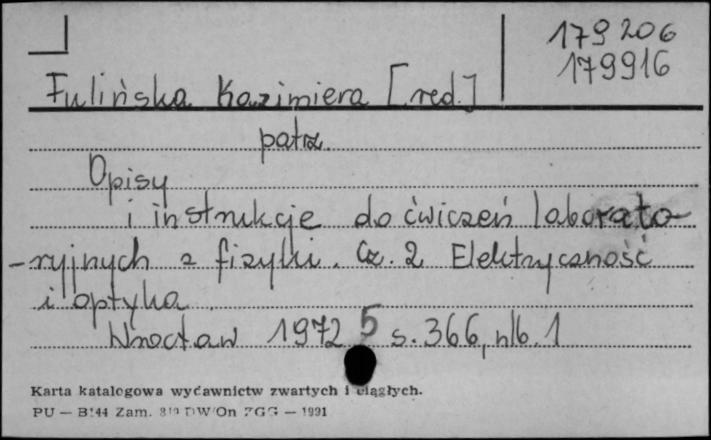 179 206
179916
Fulińska Kazimiera [red.]
patrz
Opisy
i instrukcje do ćwiczeń laborato-
-ryjnych z fizyki. Cz. 2 Elektryczność
i optyka
Wrocław 1972 5 s. 366, nlb. 1
Karta katalogowa wydawnictw zwartych i ciągłych.
PU — B144 Zam. DW/On ZGG — 1991